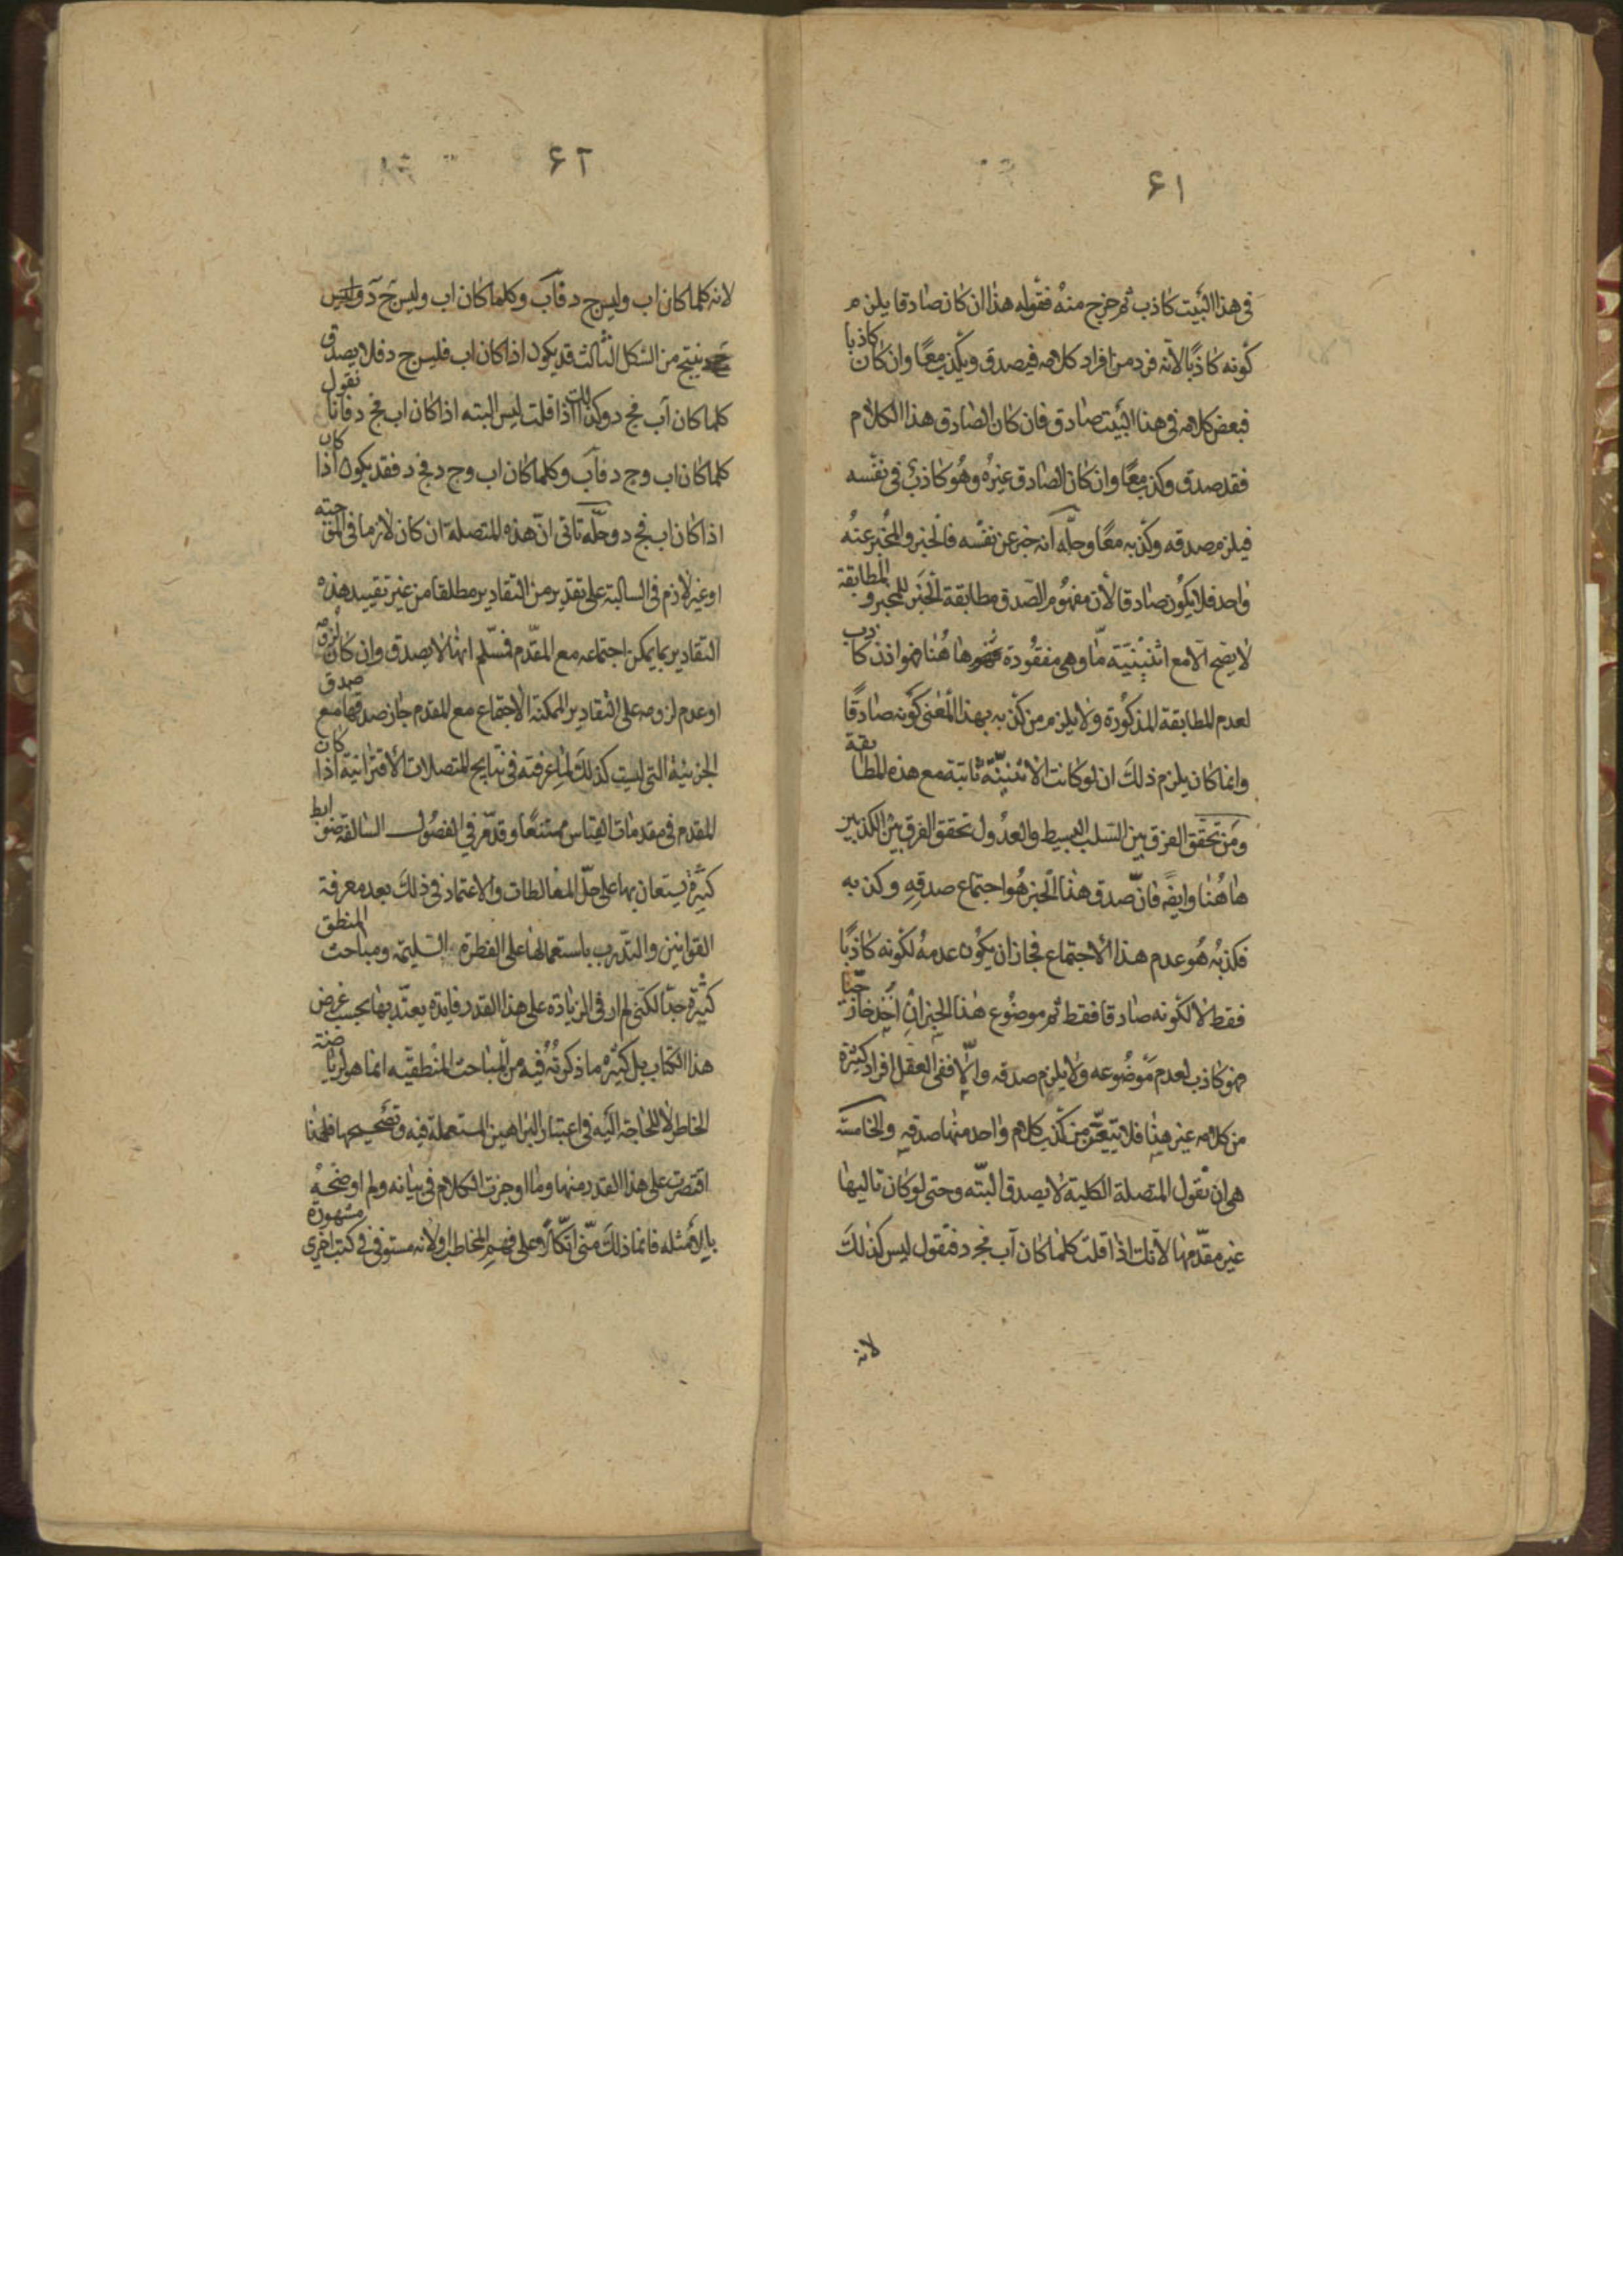 ٤١
في هذا البيت كاذب ثم خرج منه فقوله هذا ان كان صادقا يلزم
كونه كاذبا لانه فرد من افراد كلامه فيصدق ويكذب معا وان كان كاذبا
فبعض كلامه في هذا البيت صادق فان كان الصادق هذا الكلام
فقد صدق وكذب معا وان كان الصادق غيره وهو كاذب في نفسه
فيلزم صدقه وكذبه معا وحله انه خبر عن نفسه فالخبر والمخبر عنه
واحد فلا يكون صادقا لان مفهوم الصدق مطابقة الخبر للمخبر والمطابقة
لا يصح الا مع اثنينية ما وهي مفقودة هاهنا فهو اذن كاذب
لعدم المطابقة المذكورة ولا يلزم من كذبه بهذا المعنى كونه صادقا
وانما كان يلزم ذلك ان لو كانت الاثنينية ثابتة مع هذه المطابقة
ومن تحقق الفرق بين السلب البسيط والعدول تحقق الفرق بين الكذبين
هاهنا وايضا فان صدق هذا الخبر هو اجتماع صدقه وكذبه
فكذبه هو عدم هذا الاجتماع فجاز ان يكون عدمه لكونه كاذبا
فقط لا لكونه صادقا فقط ثم موضوع هذا الخبر ان اخذ خارجيا
فهو كاذب لعدم موضوعه ولا يلزم صدقه والا ففي العقل افراد كثيرة
من كلامه غير هذا فلا يتعين من كذب كلام واحد منها صدقه والخامسة
هي ان نقول المتصلة الكلية لا يصدق البتة وحتى لو كان تاليها
غير مقدمها لانك اذا قلت كلما كان آب فجد فنقول ليس كذلك
لانه
٤٢
لانه كلما كان اب وليس ج د فآب وكلما كان اب وليس ج د فليس
ينتج من الشكل الثالث قد يكون اذا كان اب فليس ج د فلا يصدق
كلما كان آب فج د وكذلك اذا قلت ليس البته اذا كان اب فج د فانا نقول
كلما كان اب وج د فآب وكلما كان اب وج د فج د فقد يكون اذا كان
اذا كان اب فج د وحله تاتى ان هذه المتصلة ان كان لازما في الموجبه
او غير لازم في السالبة على تقدير من التقادير مطلقا من غير تقييد هذه
التقادير بما يمكن اجتماعه مع المقدم فسلم انها لا يصدق وان كان لزومه
او عدم لزومه على التقادير الممكنة الاجتماع مع المقدم جاز صدقها مع صدق
الجزئية التي ليست كذلك لما عرفته في نتايج المتصلات الاقترانية اذا كان
المقدم في مقدمات القياس ممتنعا وقد مر في الفصول السالفة ضوابط
كثيرة يستعان بها على حل المغالطات والاعتماد في ذلك بعد معرفة
القوانين والتدرب باستعمالها على الفطرة السليمة ومباحث المنطق
كثيرة جدا لكني لم ار في الزيادة على هذا القدر فايدة يعتد بها بحسب غرض
هذا الكتاب بل كثير ما ذكرته فيه من المباحث المنطقيه انما هو لرياضة
الخاطر لا للحاجة اليه في اعتبار البراهين المستعملة فيه وتصحيحها فلهذا
اقتصرت على هذا القدر منها وما اوجزت الكلام في بيانه ولم اوضحه
بالامثله فانما ذلك مني اتكالا على فهم المخاطب او لانه مستوفى في كتب اخرى مشهورة